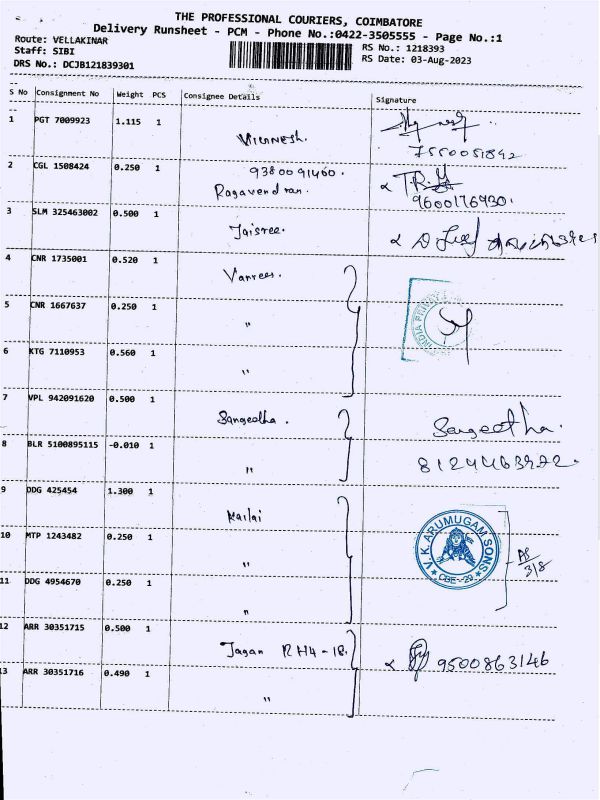 THE PROFESSIONAL COURIERS, COIMBATORE
Delivery Runsheet - PCM - Phone No.:0422-3505555 - Page No.:1
Route: VELLAKINAR
RS No.: 1218393
Staff: SIBI
RS Date: 03-Aug-2023
DRS No.: DCJB121839301
S No Consignment No Weight PCS Consignee Details Signature
1 PGT 7009923 1.115 1 Vignnesh.
7550051842
2 CGL 1508424 0.250 1 9380091460.
Ragavendran. T.R.
9600176930.
3 SLM 325463002 0.500 1 Jaisree.
4 CNR 1735001 0.520 1
5 CNR 1667637 0.250 1 "
6 KTG 7110953 0.560 1 "
7 VPL 942091620 0.500 1 Sangeetha. Sangeetha.
8 BLR 5100895115 -0.010 1 "
9 DDG 425454 1.300 1 Kailai
V.K.ARUMUGAM SONS
CBE-29
3/8
10 MTP 1243482 0.250 1 "
11 DDG 4954670 0.250 1 "
12 ARR 30351715 0.500 1 Jagan RH4-18. 9500863146
13 ARR 30351716 0.490 1 "